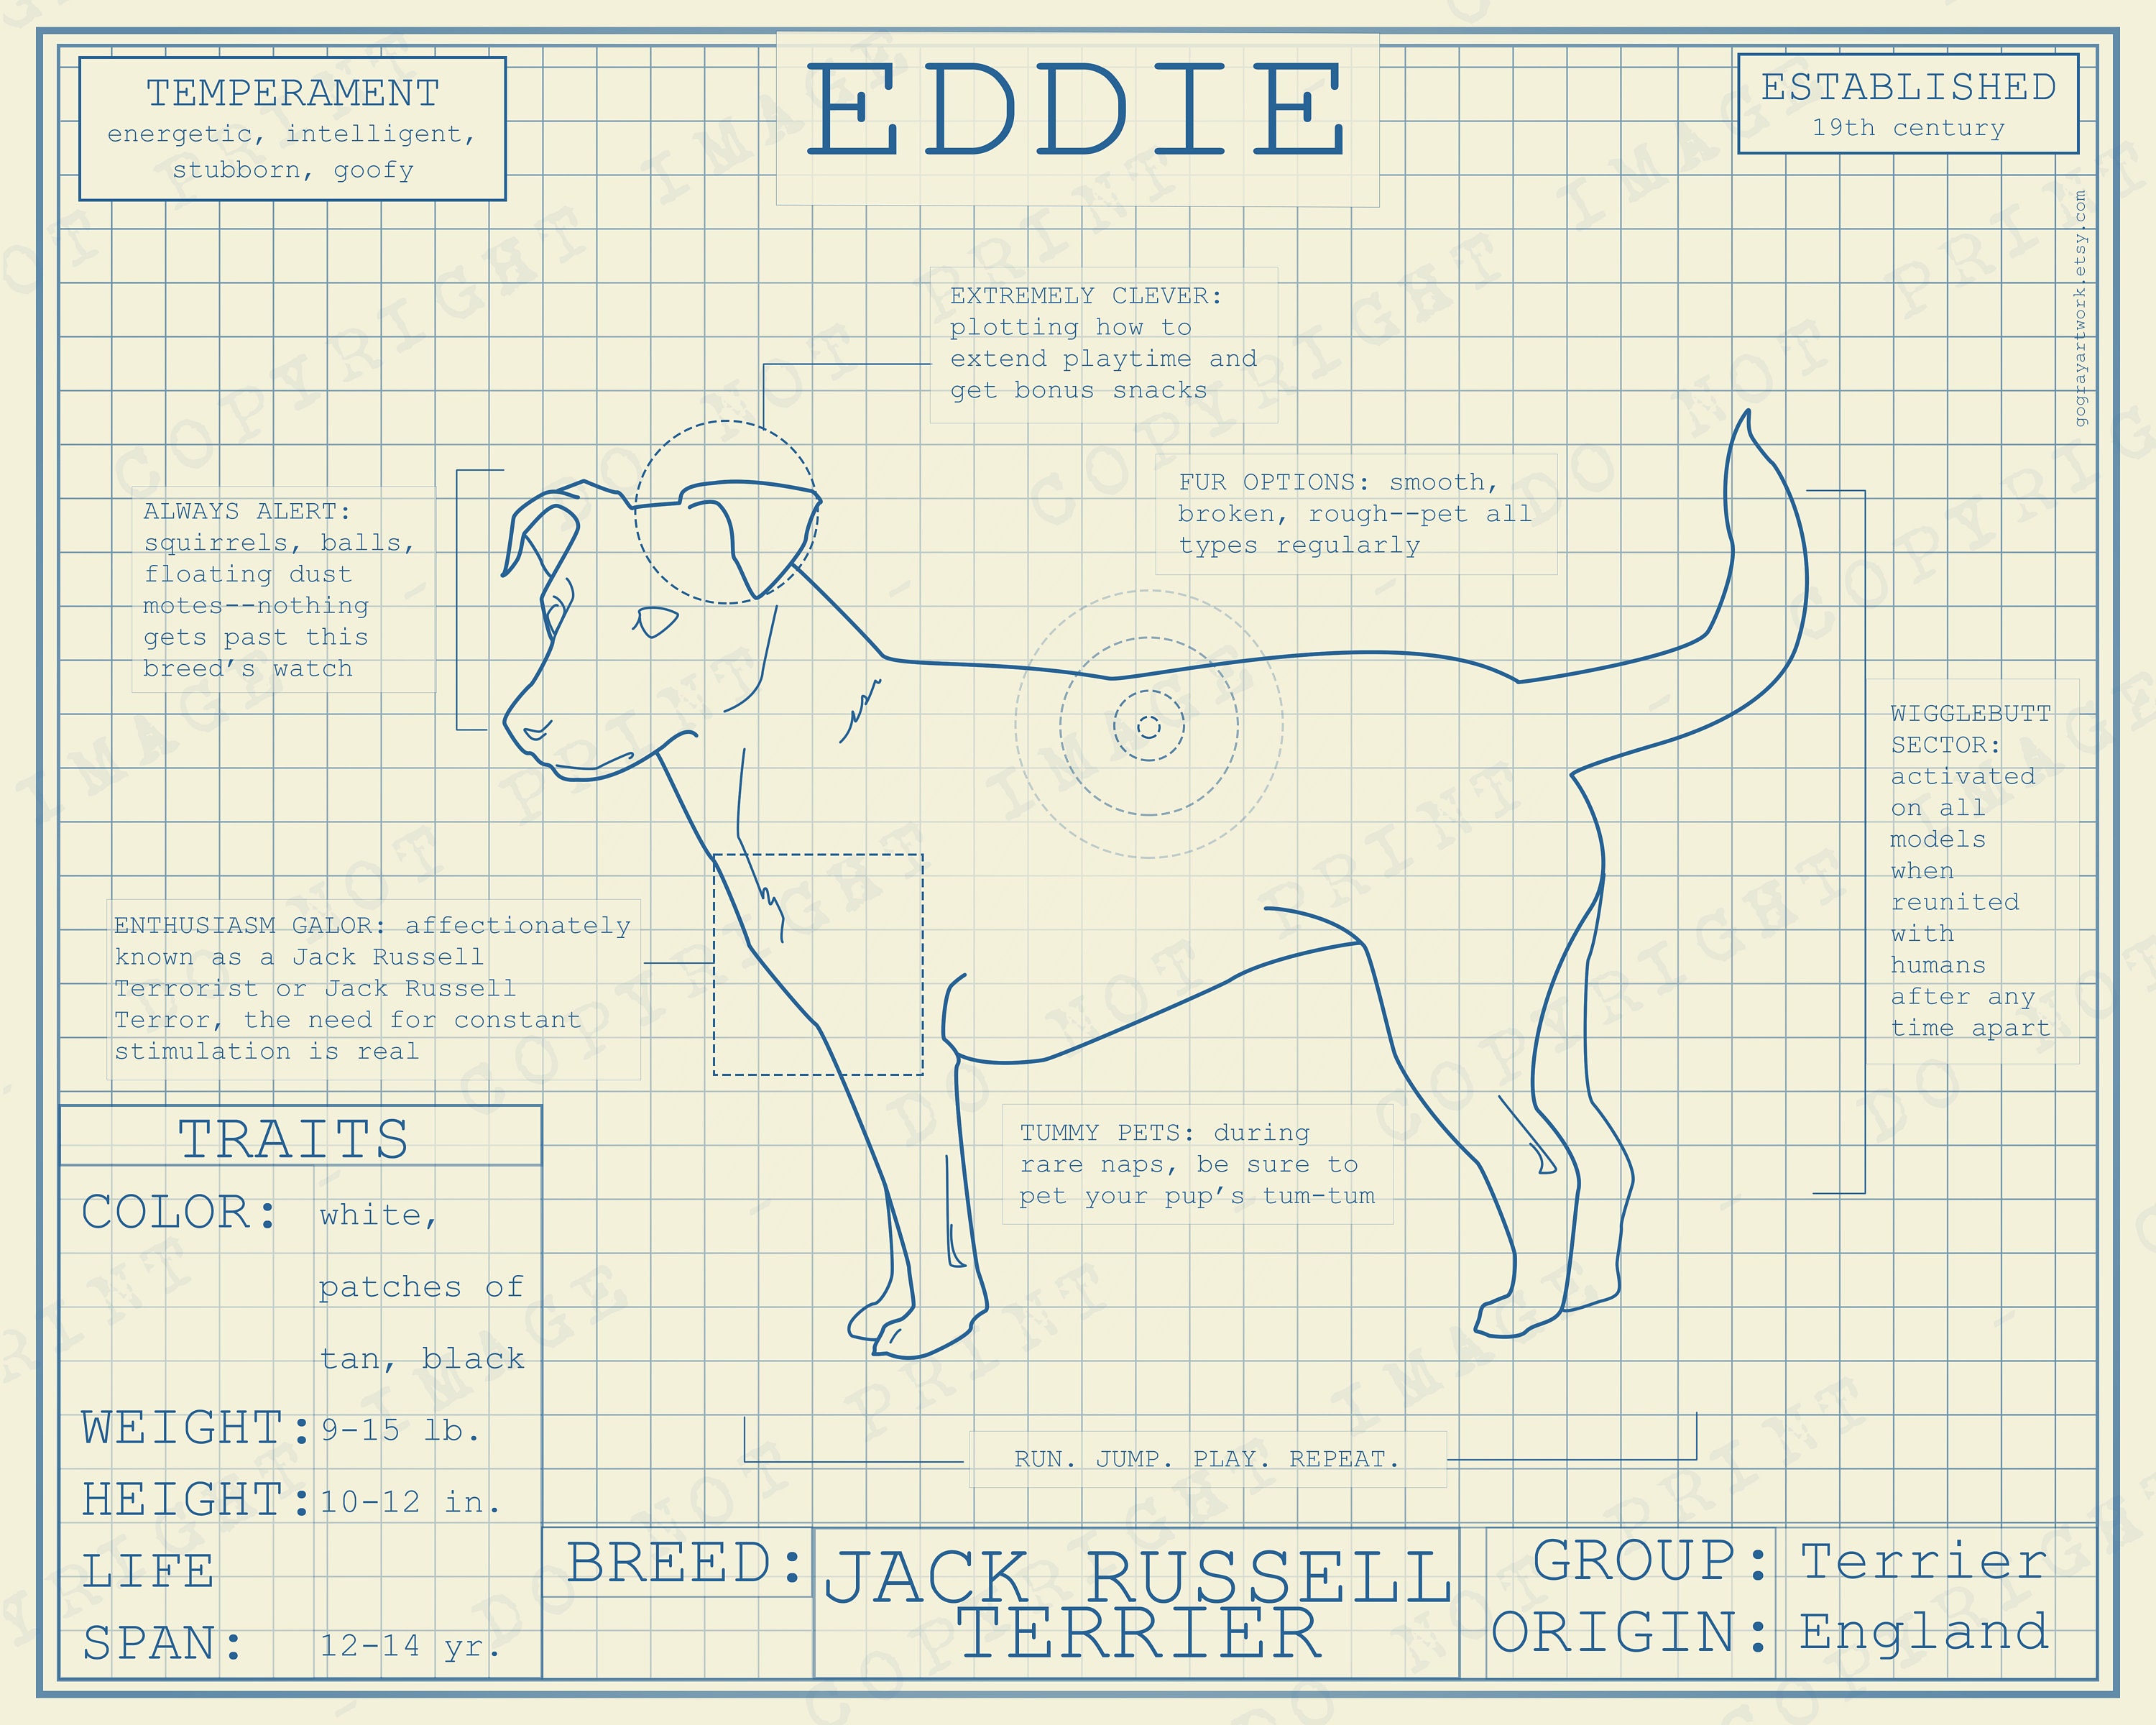 TEMPERAMENT
energetic, intelligent,
stubborn, goofy
EDDIE
ESTABLISHED
19th century
gograyartwork.etsy.com
EXTREMELY CLEVER:
plotting how to
extend playtime and
get bonus snacks
ALWAYS ALERT:
squirrels, balls,
floating dust
motes--nothing
gets past this
breed's watch
FUR OPTIONS: smooth,
broken, rough--pet all
types regularly
WIGGLEBUTT
SECTOR:
activated
on all
models
when
reunited
with
humans
after any
time apart
ENTHUSIASM GALOR: affectionately
known as a Jack Russell
Terrorist or Jack Russell
Terror, the need for constant
stimulation is real
TUMMY PETS: during
rare naps, be sure to
pet your pup's tum-tum
RUN. JUMP. PLAY. REPEAT.
TRAITS
COLOR: white,
patches of
tan, black
WEIGHT: 9-15 lb.
HEIGHT: 10-12 in.
LIFE
SPAN: 12-14 yr.
BREED: JACK RUSSELL
TERRIER
GROUP: Terrier
ORIGIN: England
COPYRIGHT IMAGE - DO NOT PRINT